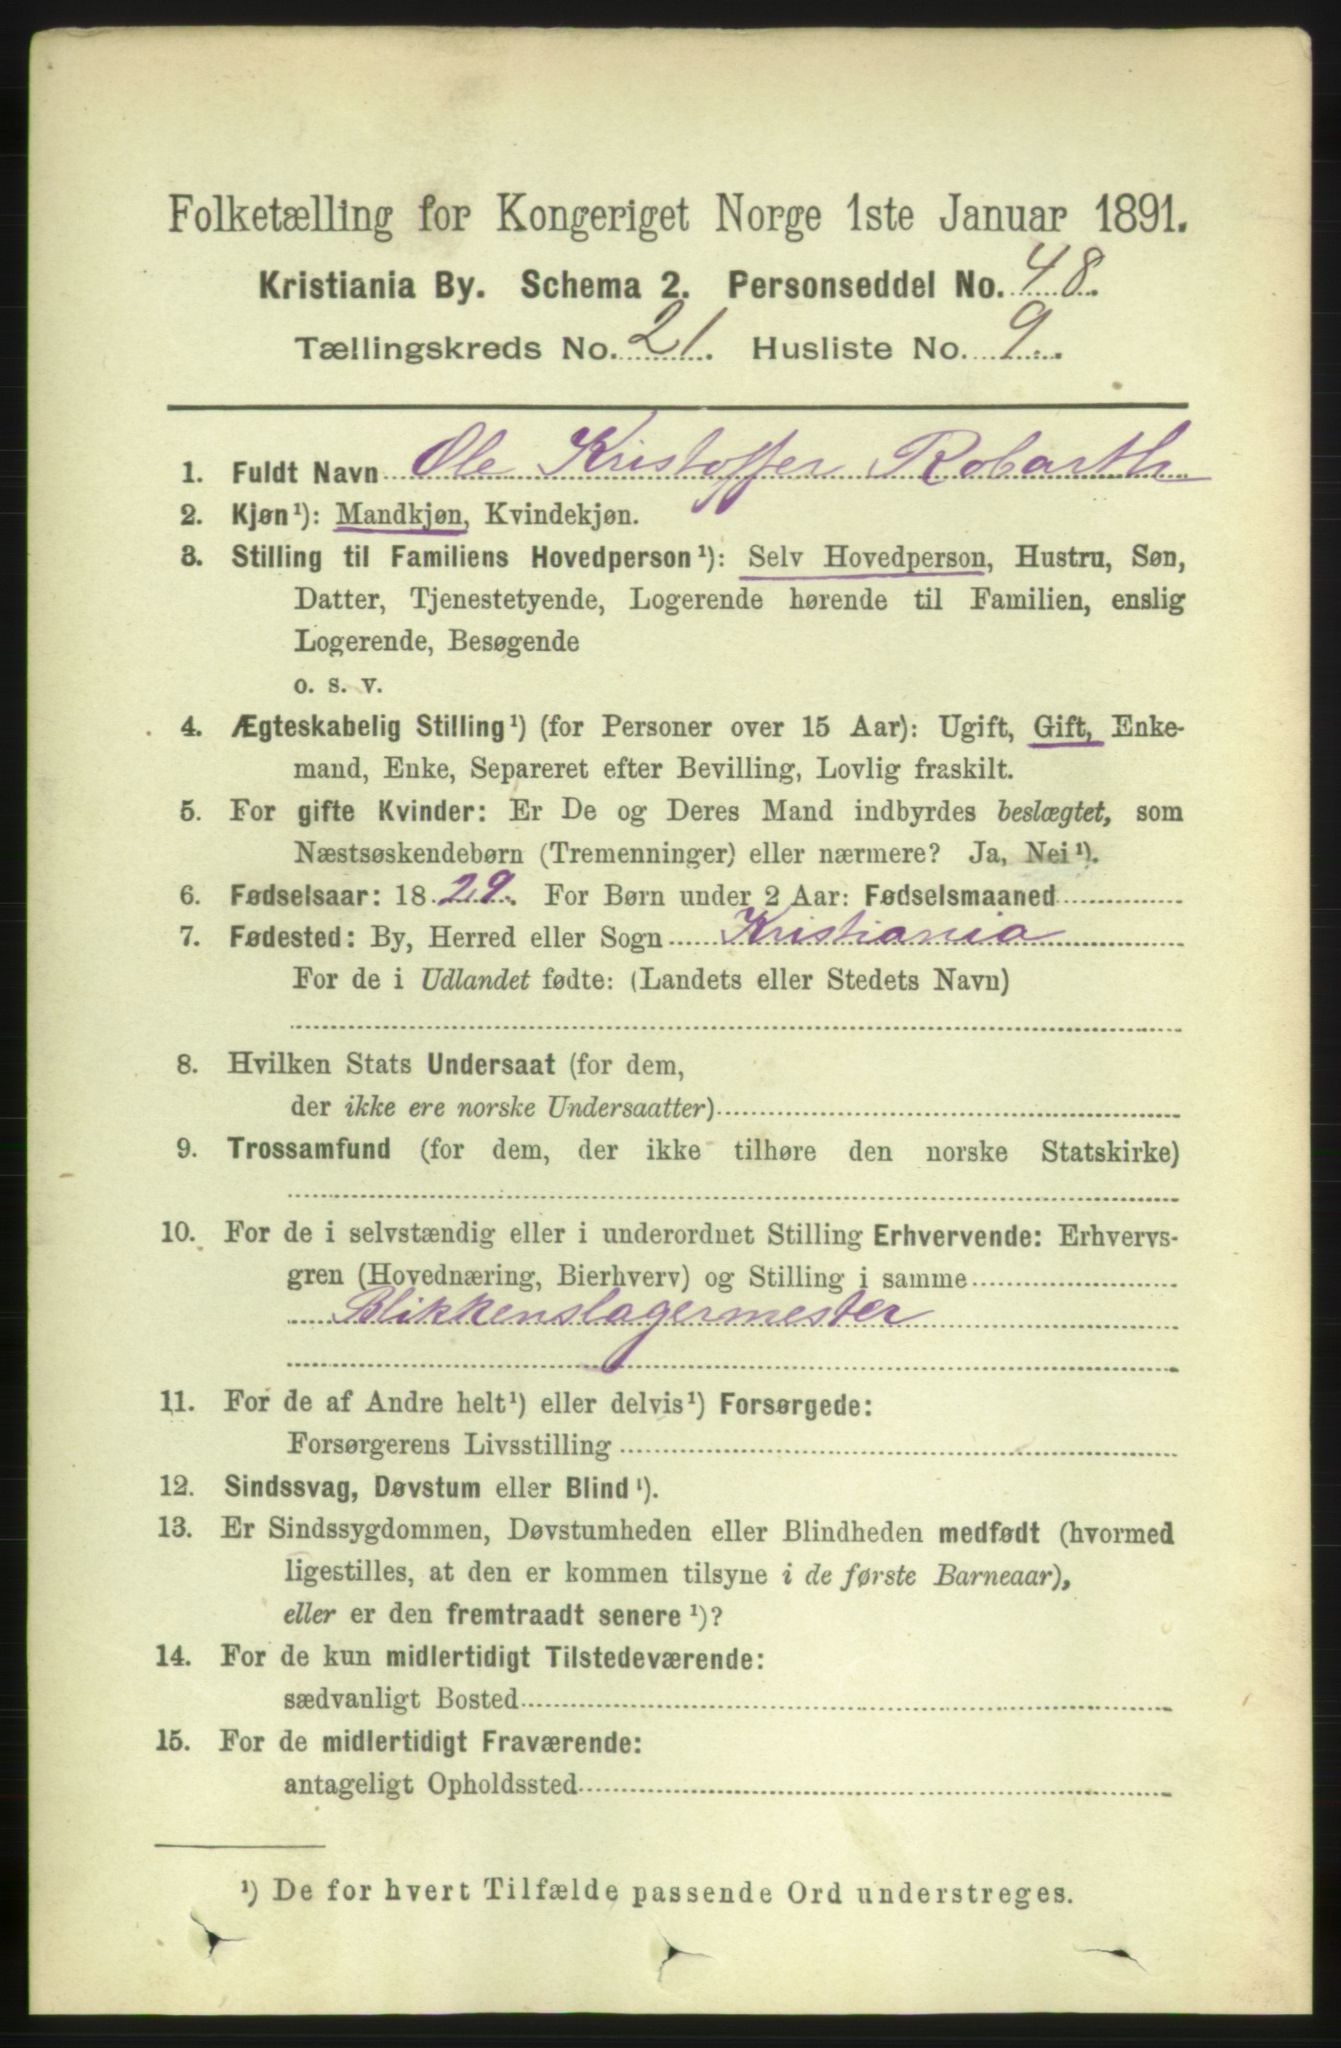 Folketælling for Kongeriget Norge 1ste Januar 1891.
Kristiania By. Schema 2. Personseddel No. 48.
Tællingskreds No. 21. Husliste No. 9.
1. Fuldt Navn Ole Kristoffer Robarth
2. Kjøn¹): Mandkjøn, Kvindekjøn.
3. Stilling til Familiens Hovedperson¹): Selv Hovedperson, Hustru, Søn,
Datter, Tjenestetyende, Logerende hørende til Familien, enslig
Logerende, Besøgende
o. s. v.
4. Ægteskabelig Stilling¹) (for Personer over 15 Aar): Ugift, Gift, Enke-
mand, Enke, Separeret efter Bevilling, Lovlig fraskilt.
5. For gifte Kvinder: Er De og Deres Mand indbyrdes beslægtet, som
Næstsøskendebørn (Tremenninger) eller nærmere? Ja, Nei¹).
6. Fødselsaar: 1829. For Børn under 2 Aar: Fødselsmaaned
7. Fødested: By, Herred eller Sogn Kristiania
For de i Udlandet fødte: (Landets eller Stedets Navn)
8. Hvilken Stats Undersaat (for dem,
der ikke ere norske Undersaatter)
9. Trossamfund (for dem, der ikke tilhøre den norske Statskirke)
10. For de i selvstændig eller i underordnet Stilling Erhvervende: Erhvervs-
gren (Hovednæring, Bierhverv) og Stilling i samme
Blikkenslagermester
11. For de af Andre helt¹) eller delvis¹) Forsørgede:
Forsørgerens Livsstilling
12. Sindssvag, Døvstum eller Blind¹).
13. Er Sindssygdommen, Døvstumheden eller Blindheden medfødt (hvormed
ligestilles, at den er kommen tilsyne i de første Barneaar),
eller er den fremtraadt senere¹)?
14. For de kun midlertidigt Tilstedeværende:
sædvanligt Bosted
15. For de midlertidigt Fraværende:
antageligt Opholdssted
¹) De for hvert Tilfælde passende Ord understreges.